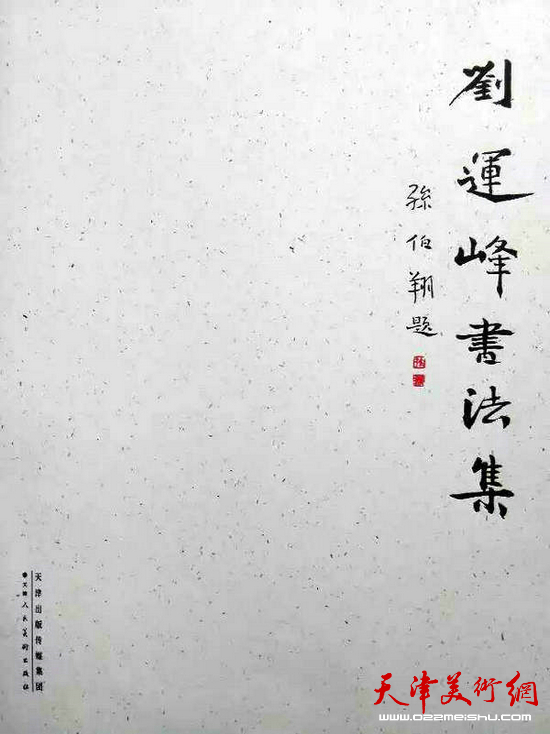 劉運峰書法集
孫伯翔題
天津出版传媒集团
天津人民美術出版社
天津美術網
www.022meishu.com